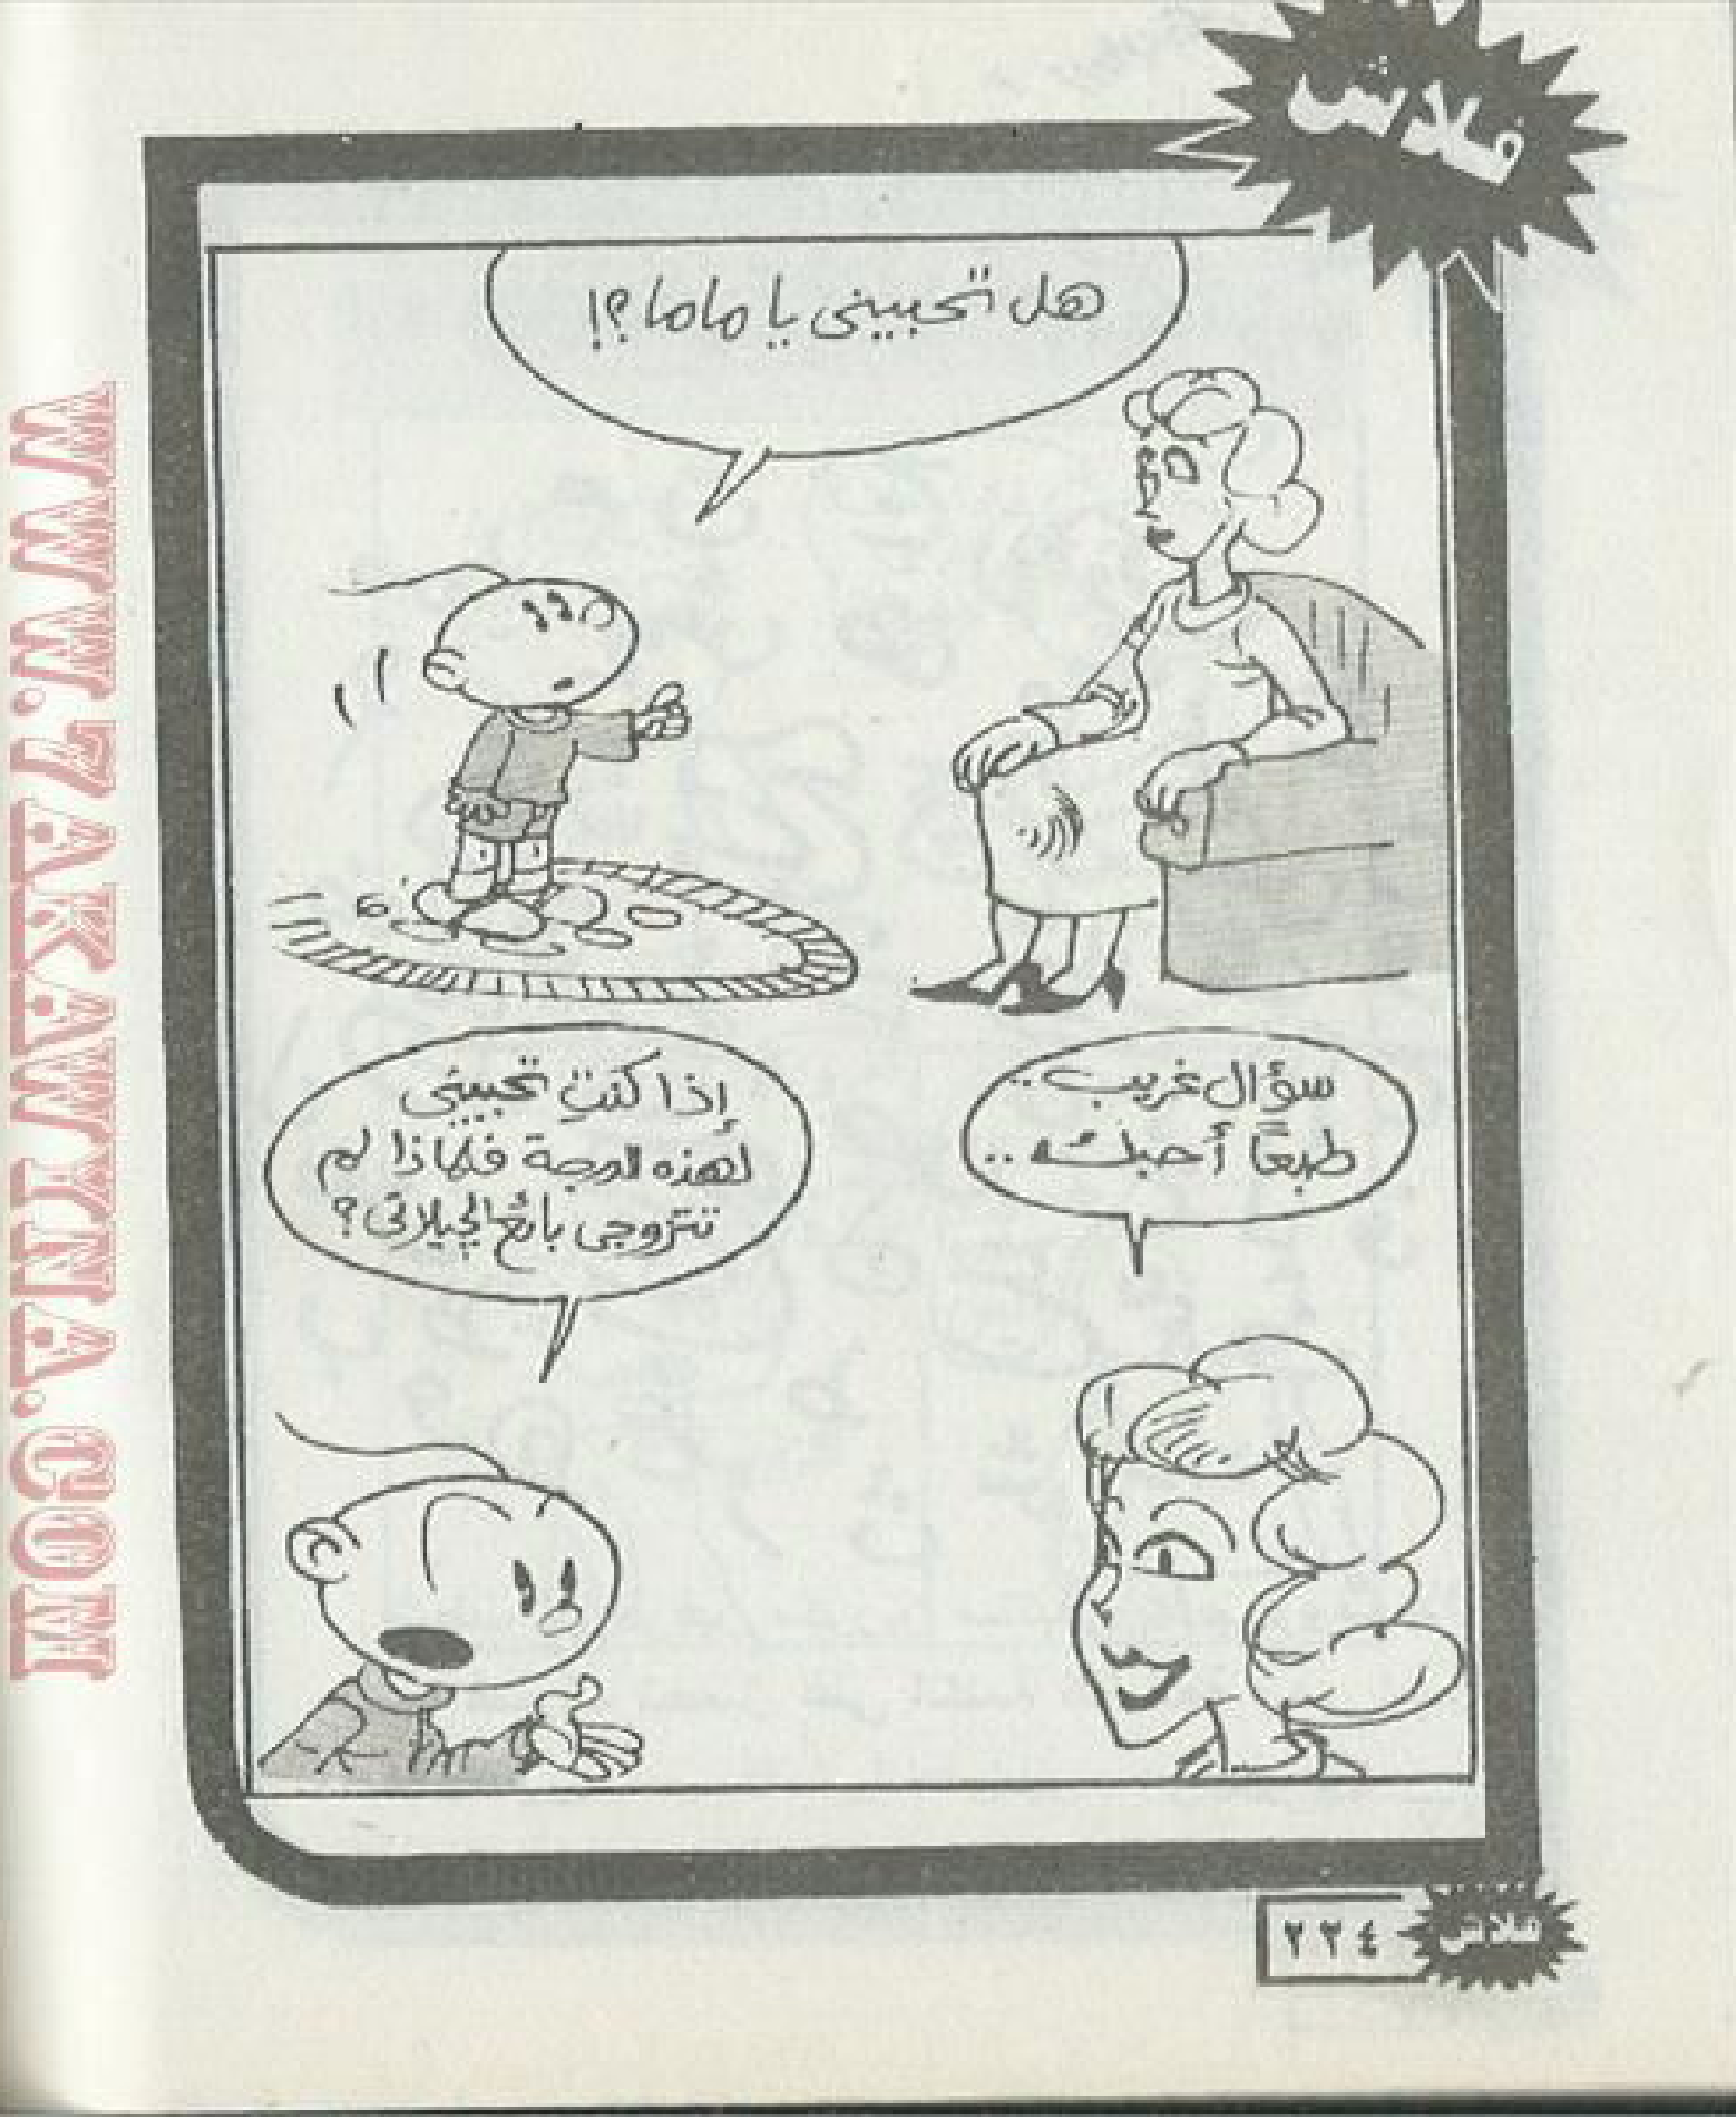 فلاش
هل تحبيني يا ماما؟!
سؤال غريب..
طبعًا أحبك..
إذا كنتِ تحبيني
لهذه الدرجة فلماذا لم
تتزوجي بائع الجيلاتي؟
٢٢٤
فلاش
WWW.7AKAWITNA.COM